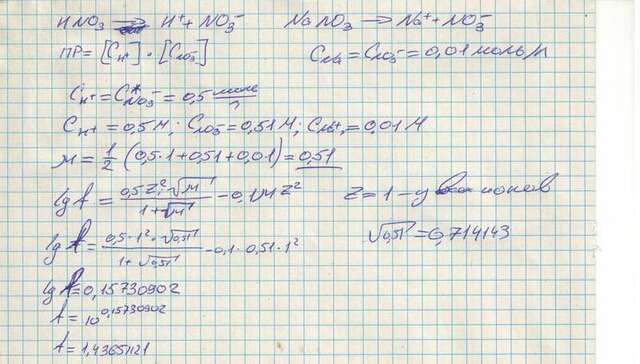 HNO3 → H⁺ + NO3⁻    NaNO3 → Na⁺ + NO3⁻
ПР = [CH⁺] · [CNO3⁻]    CNa = CNO3⁻ = 0,01 моль/л
CH⁺ = C*NO3⁻ = 0,5 моль/л
CH⁺ = 0,5 М; CNO3⁻ = 0,51 М; CNa⁺ = 0,01 М
м = 1/2 (0,5·1 + 0,51 + 0,01) = 0,51
lg f = 0,5z²·√м / 1+√м - 0,1мz²    z = 1 - у ионов
lg f = 0,5·1²·√0,51 / 1+√0,51 - 0,1·0,51·1²    √0,51 = 0,714143
lg f = 0,15730902
f = 10^0,15730902
f = 1,43651121